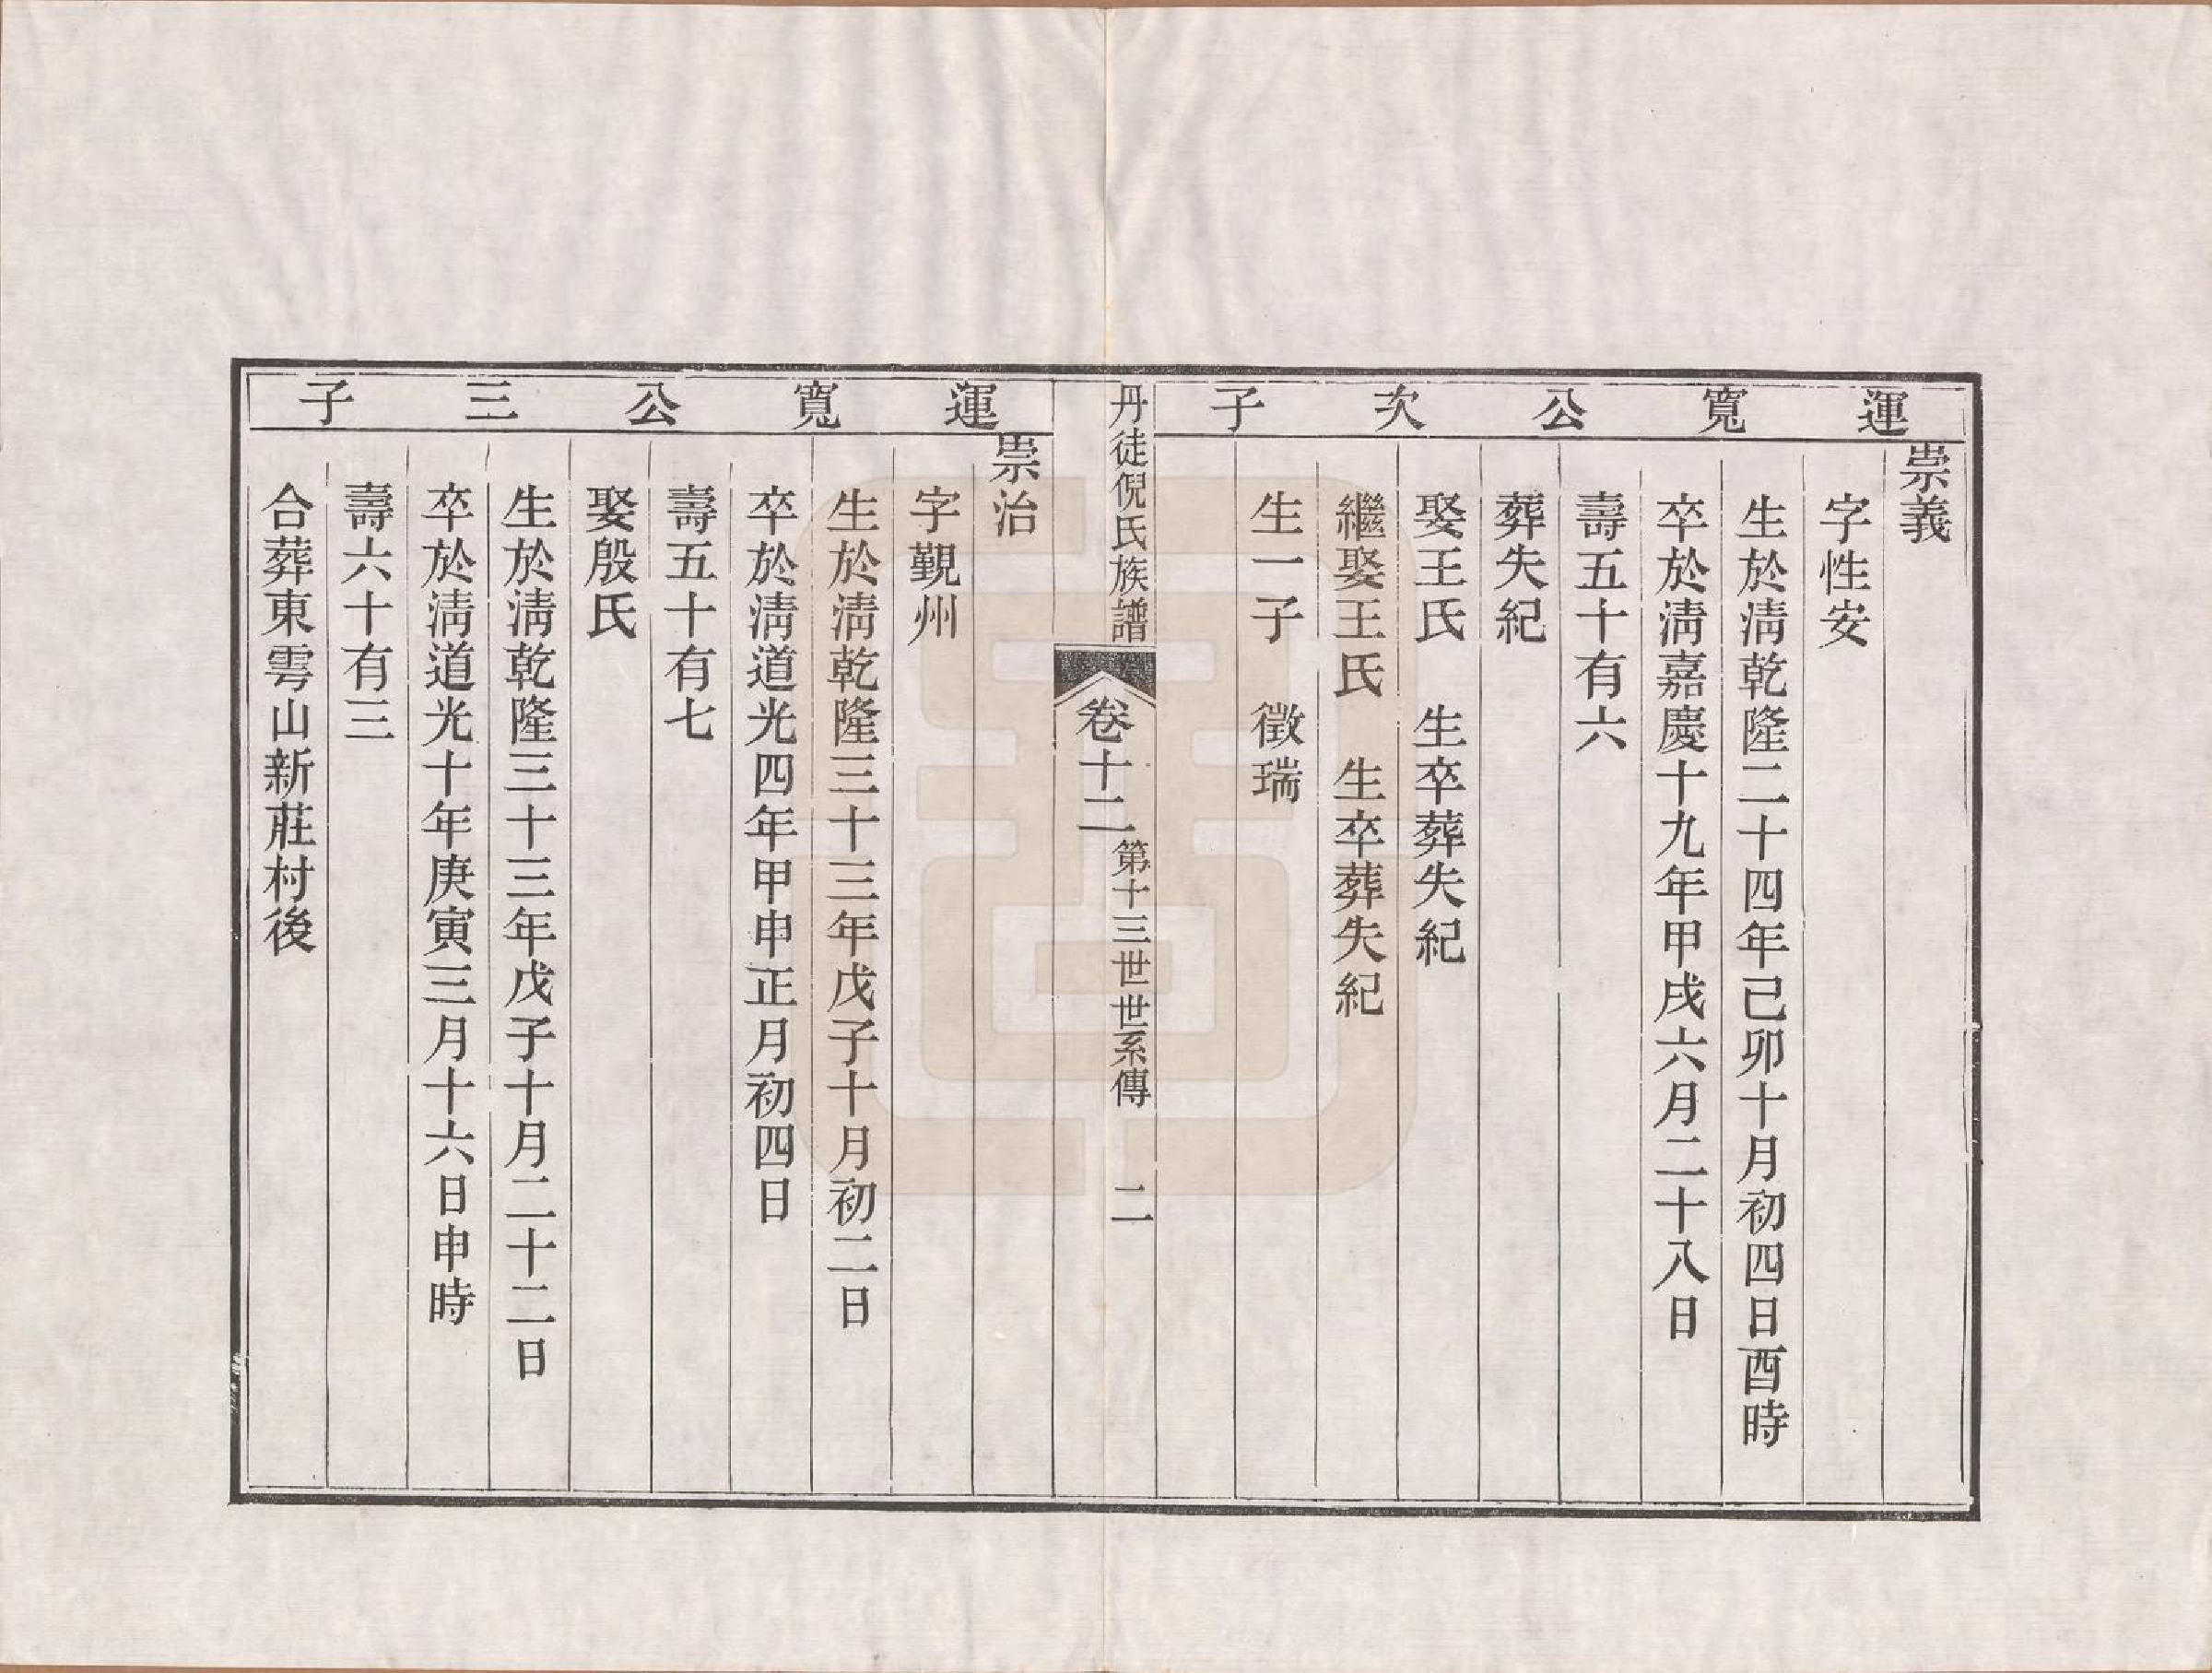 運寬公次子
崇義
字性安
生於淸乾隆二十四年己卯十月初四日酉時
卒於淸嘉慶十九年甲戌六月二十八日
壽五十有六
葬失紀
娶王氏　生卒葬失紀
繼娶王氏　生卒葬失紀
生一子　徵瑞
丹徒倪氏族譜
卷十二
第十三世世系傳
二
運寬公三子
崇治
字觐州
生於淸乾隆三十三年戊子十月初二日
卒於淸道光四年甲申正月初四日
壽五十有七
娶殷氏
生於淸乾隆三十三年戊子十月二十二日
卒於淸道光十年庚寅三月十六日申時
壽六十有三
合葬東雲山新莊村後